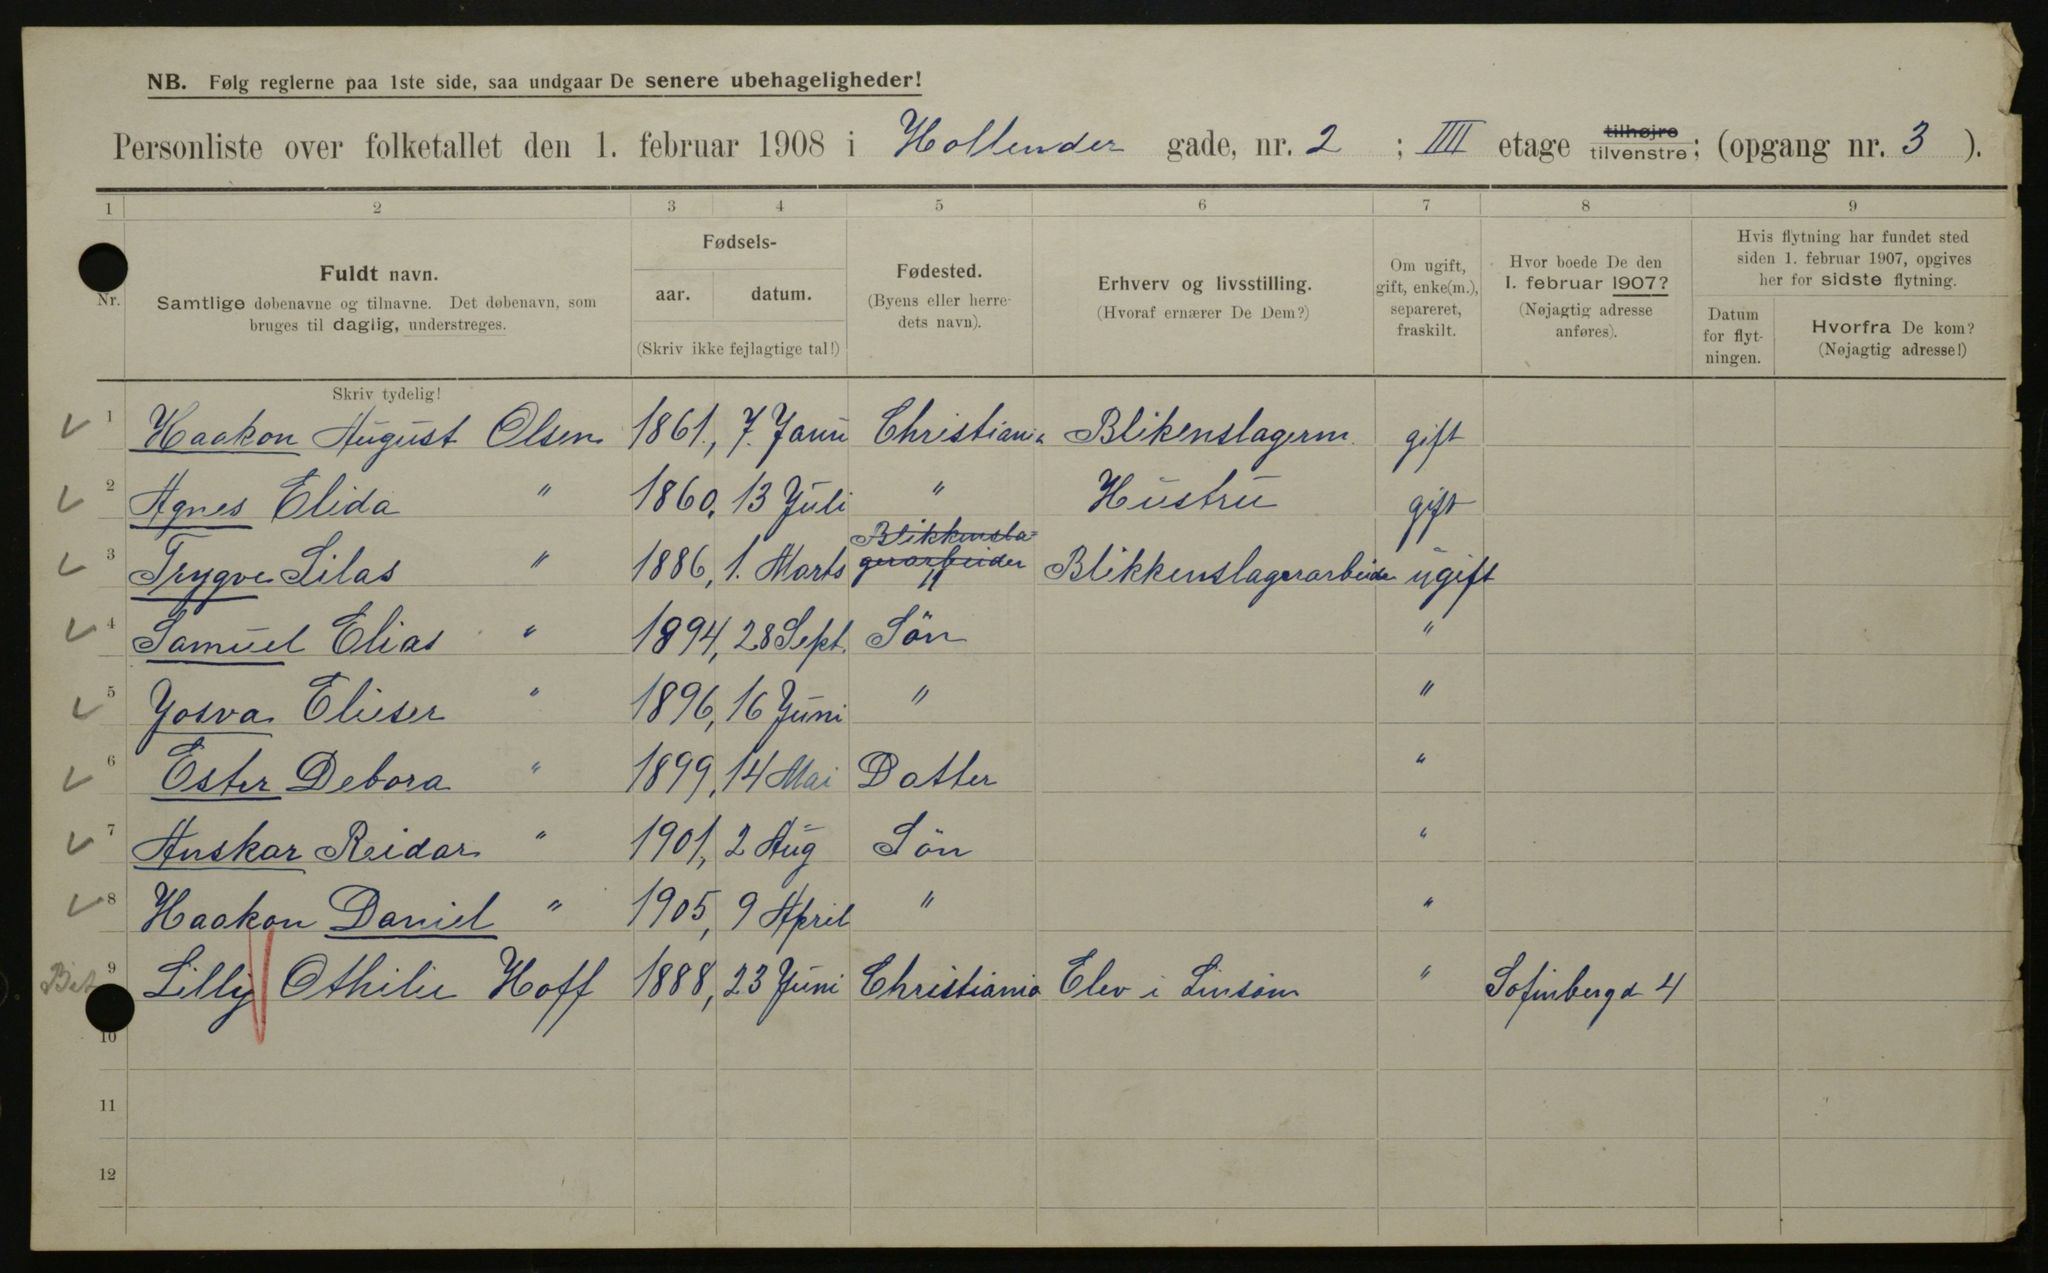 NB. Følg reglerne paa 1ste side, saa undgaar De senere ubehageligheder!
Personliste over folketallet den 1. februar 1908 i Hollender gade, nr. 2 ; IIII etage tilhøjre tilvenstre; (opgang nr. 3 ).
1 2 3 4 5 6 7 8 9
Nr.
Fuldt navn.
Samtlige døbenavne og tilnavne. Det døbenavn, som
bruges til daglig, understreges.
Skriv tydelig!
Fødsels-
aar. datum.
(Skriv ikke fejlagtige tal!)
Fødested.
(Byens eller herre-
dets navn).
Erhverv og livsstilling.
(Hvoraf ernærer De Dem?)
Om ugift,
gift, enke(m.),
separeret,
fraskilt.
Hvor boede De den
1. februar 1907?
(Nøjagtig adresse
anføres).
Hvis flytning har fundet sted
siden 1. februar 1907, opgives
her for sidste flytning.
Datum
for flyt-
ningen.
Hvorfra De kom?
(Nøjagtig adresse!)
1 Haakon August Olsen 1861, 7. Janu Christiania Blikenslagerm. gift
2 Agnes Elida " 1860, 13 Juli " Hustru gift
Blikkensla=
3 Trygve Silas " 1886, 1. Marts gerarbeider " Blikkenslagerarbeider ugift
4 Samuel Elias " 1894, 28 Sept. Sön "
5 Josva Elieser " 1896, 16 Juni " "
6 Ester Debora " 1899, 14 Mai Datter "
7 Anskar Reidar " 1901, 2 Aug Sön "
8 Haakon Daniel " 1905, 9 April " "
9 Lilly Othilie Hoff 1888, 23 Juni Christiania Elev i Linsöm " Sofinbergd 4
10
11
12